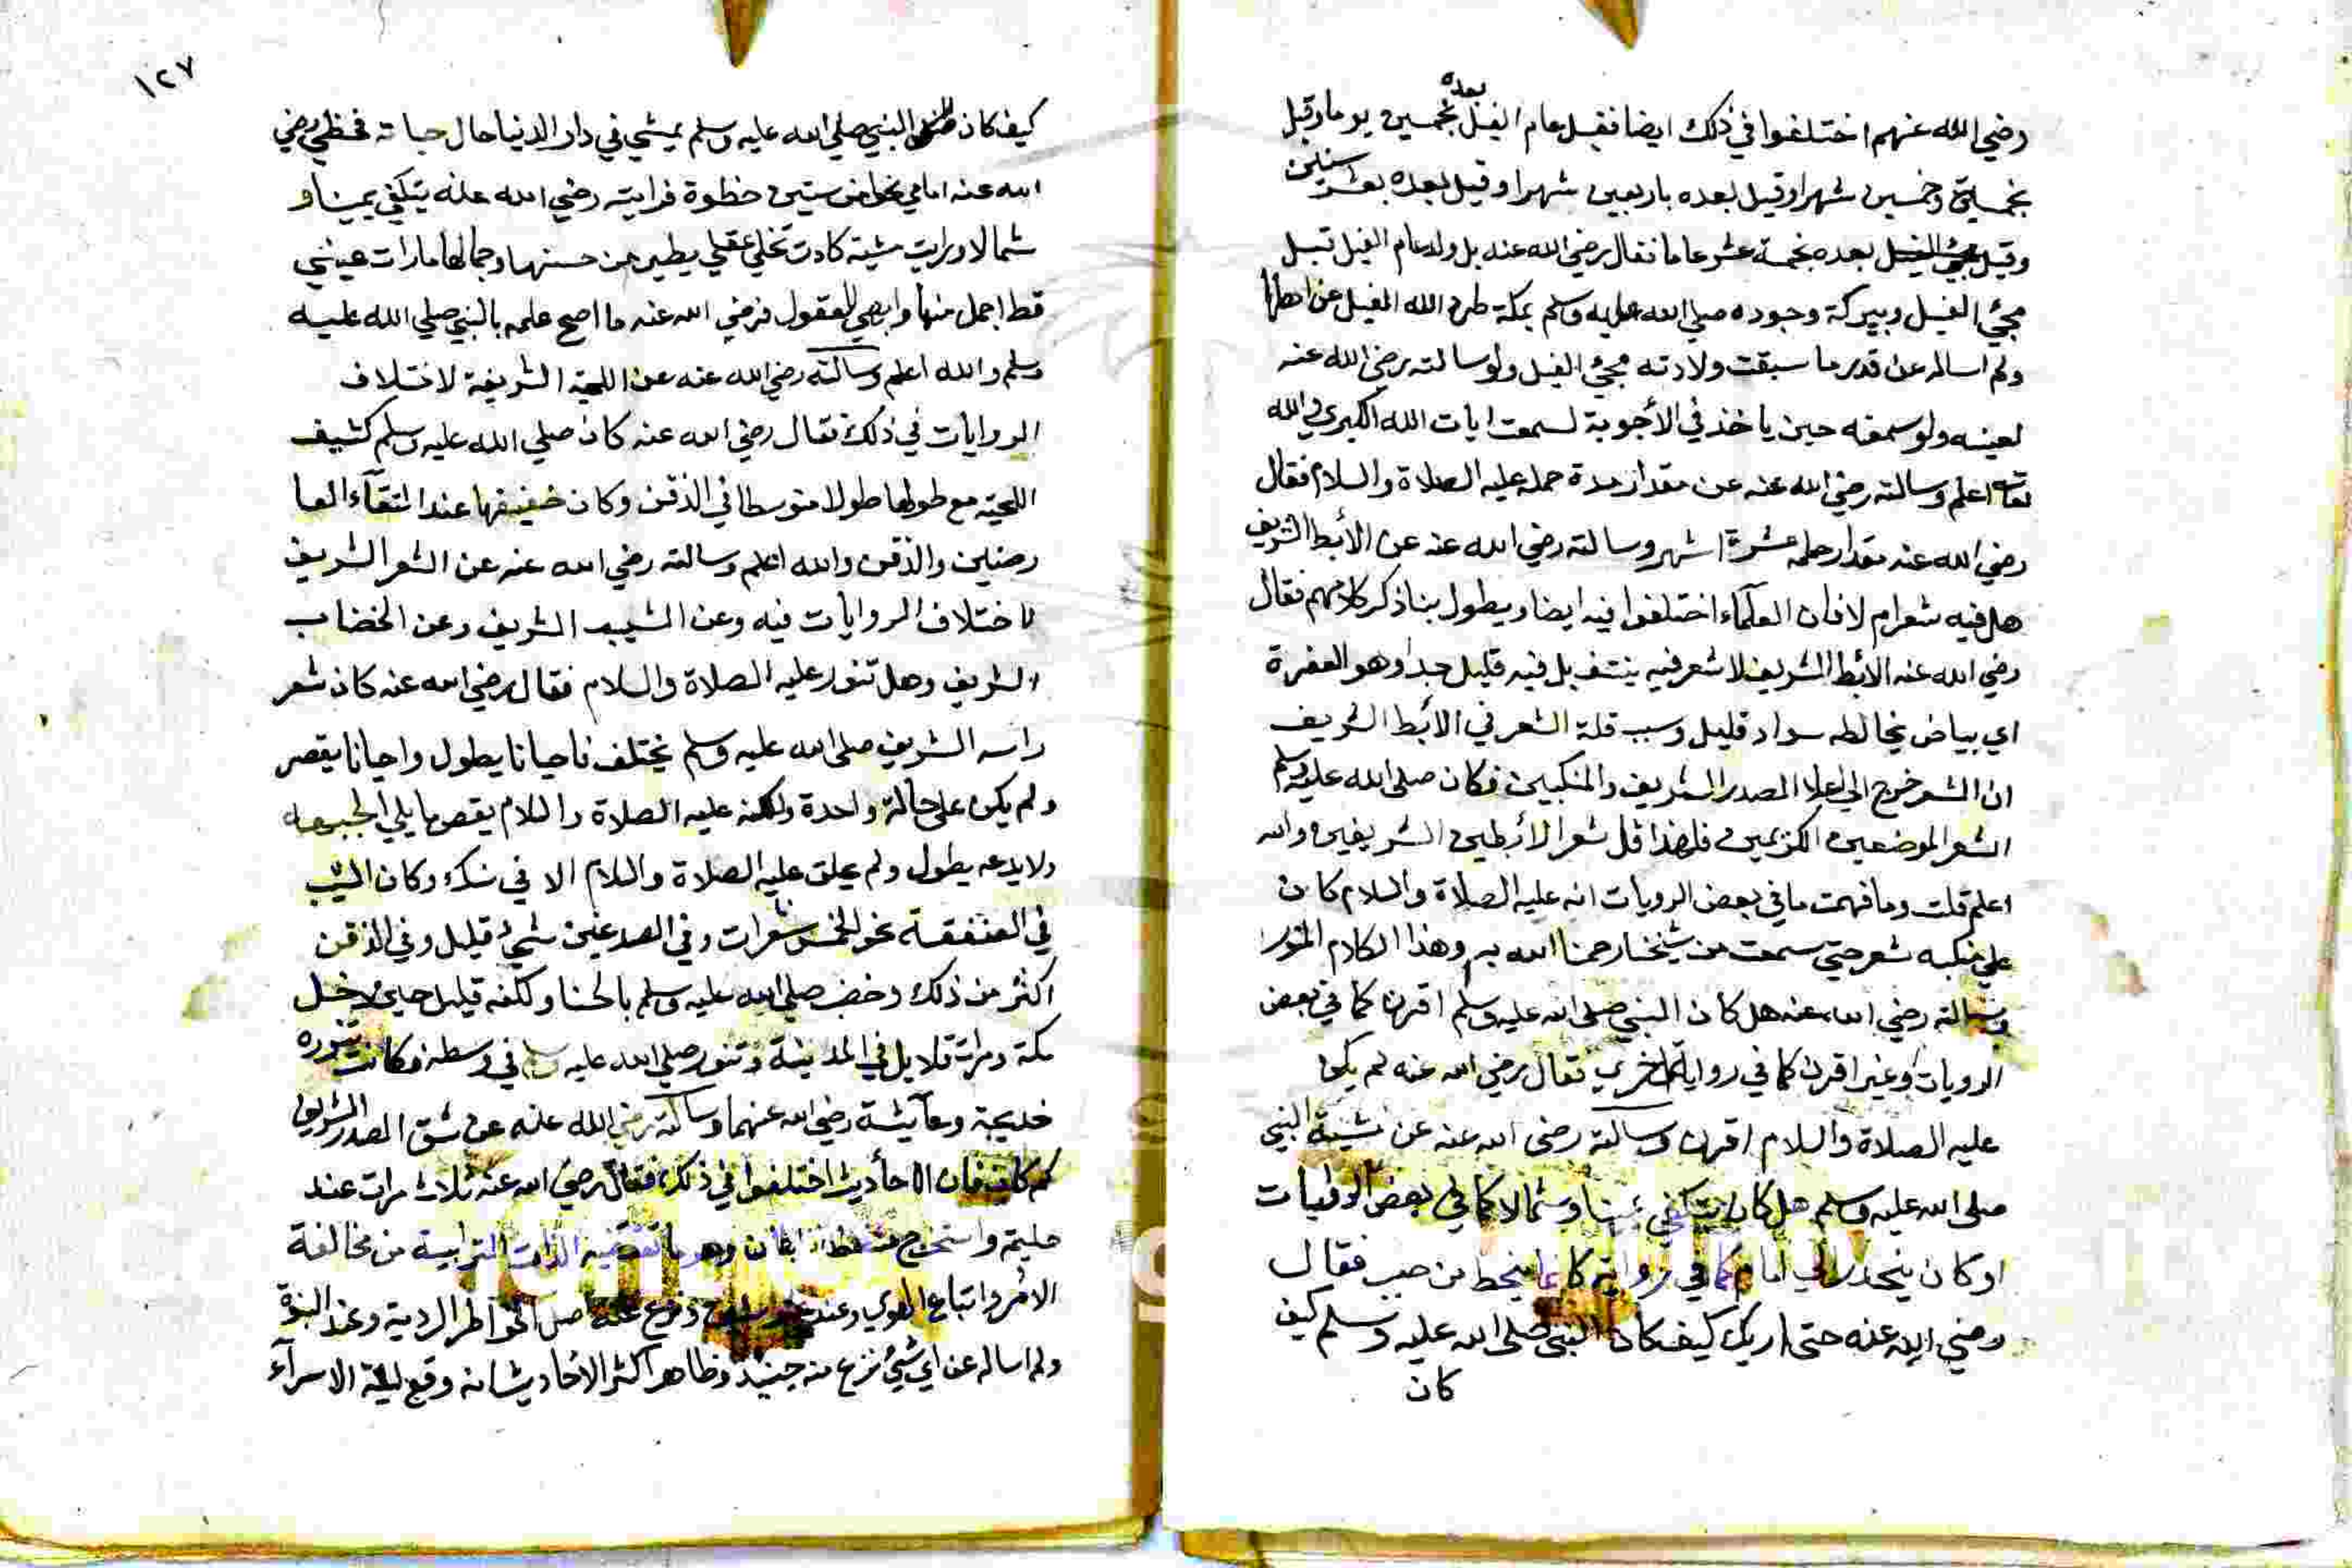 رضي الله عنهم اختلفوا في ذلك ايضا فقيل عام الفيل بعده بخمسين يوما وقيل
بخمسة وخمسين شهرا وقيل بعده باربعين شهرا وقيل بعده بعشر سنين
وقيل بعده بخمسة عشر عاما فقال رضي الله عنه بل ولد عام الفيل قبل
مجئ الفيل وببركة وجوده صلي الله عليه وسلم بمكة طرد الله الفيل عن اهلها
ولم اساله عن قدر ما سبقت ولادته مجئ الفيل ولو سالته رضي الله عنه
لعينه ولو سمعته حين ياخذ في الأجوبة لسمعت ايات الله الكبري والله
تعالى اعلم وسالته رضي الله عنه عن مقدار مدة حمله عليه الصلاة والسلام فقال
رضي الله عنه مقدار حمله عشرة اشهر وسالته رضي الله عنه عن الأبط الشريف
هل فيه شعر ام لا فان العلماء اختلفوا فيه ايضا ويطول بنا ذكر كلامهم فقال
رضي الله عنه الأبط الشريف لا شعر فيه ينتف بل فيه قليل جدا وهو العفرة
اي بياض يخالطه سواد قليل وسبب قلة الشعر في الأبط الشريف
ان الشعر خرج الي اعلا الصدر الشريف والمنكبين فكان صلى الله عليه وسلم
الشعر الموضعين الكريمين فلهذا قل شعر الأبطين الشريفين والله
اعلم قلت وما فهمت ما في بعض الرويات انه عليه الصلاة والسلام كان
علي منكبه شعر حتي سمعت من شيخنا رحمنا الله به وهذا الكلام المنور
وسالته رضي الله عنه هل كان النبي صلى الله عليه وسلم اقرن كما في بعض
الرويات او غير اقرن كما في رواية اخري فقال رضي الله عنه لم يكن
عليه الصلاة والسلام اقرن وسالته رضى الله عنه عن مشية النبي
صلى الله عليه وسلم هل كان يتكفي يمينا وشمالا كما في بعض الرويات
او كان ينحدر الي امام كما في رواية كانما ينحط من صبب فقال
رضي الله عنه حتى اريك كيف كان النبي صلى الله عليه وسلم كيف
كان
١٢٧
كيف كان النبي صلي الله عليه وسلم يمشي في دار الدنيا حال حياته فخطي رضي
الله عنه امامي نحوا من ستين خطوة فرايته رضي الله عنه يتكفي يمينا و
شمالا ورايت مشية كادت تخلي عقلي يطير من حسنها وجمالها ما رات عيني
قط اجمل منها وابهي للعقول فرضي الله عنه ما اصح علمه بالنبي صلي الله عليه
وسلم والله اعلم وسالته رضي الله عنه عن اللحية الشريفة لاختلاف
الروايات في ذلك فقال رضي الله عنه كان صلي الله عليه وسلم كثيف
اللحية مع طولها طولا متوسطا في الذقن وكان خفيفها عند التقآء العا
رضين والذقن والله اعلم وسالته رضي الله عنه عن الشعر الشريف
لاختلاف الروايات فيه وعن الشيب الشريف وعن الخضاب
الشريف وهل تنور عليه الصلاة والسلام فقال رضي الله عنه كان شعر
راسه الشريف صلى الله عليه وسلم يختلف فاحيانا يطول واحيانا يقصر
ولم يكن على حالة واحدة ولكنه عليه الصلاة والسلام يقص ما يلي الجبهه
ولا يدعه يطول ولم يحلق عليه الصلاة والسلام الا في نسك وكان الشيب
في العنفقة نحو الخمس شعرات وفي الصدغين شئ قليل وفي الذقن
اكثر من ذلك وخضب صلي الله عليه وسلم بالحنا ولكنه قليل حين دخل
مكة ومرات قلايل في المدينة وتنور صلي الله عليه وسلم في وسطه فكانت تنوره
خديجة وعآيشة رضي الله عنهما وسالته رضي الله عنه عن شق الصدر الشريف
كم كان فان الاحاديث اختلفوا في ذلك فقال رضي الله عنه ثلاث مرات عند
حليمة واستخرج منه حظ الشيطان وهو ما تقتضيه الذات الترابية من مخالفة
الامر واتباع الهوي وعند عشر سنين ونزع منه اصل الخواطر الردية وعند النبوة
ولم اساله عن اي شئ نزع منه حينئذ وظاهر اكثر الأحاديث انه وقع ليلة الاسرآء